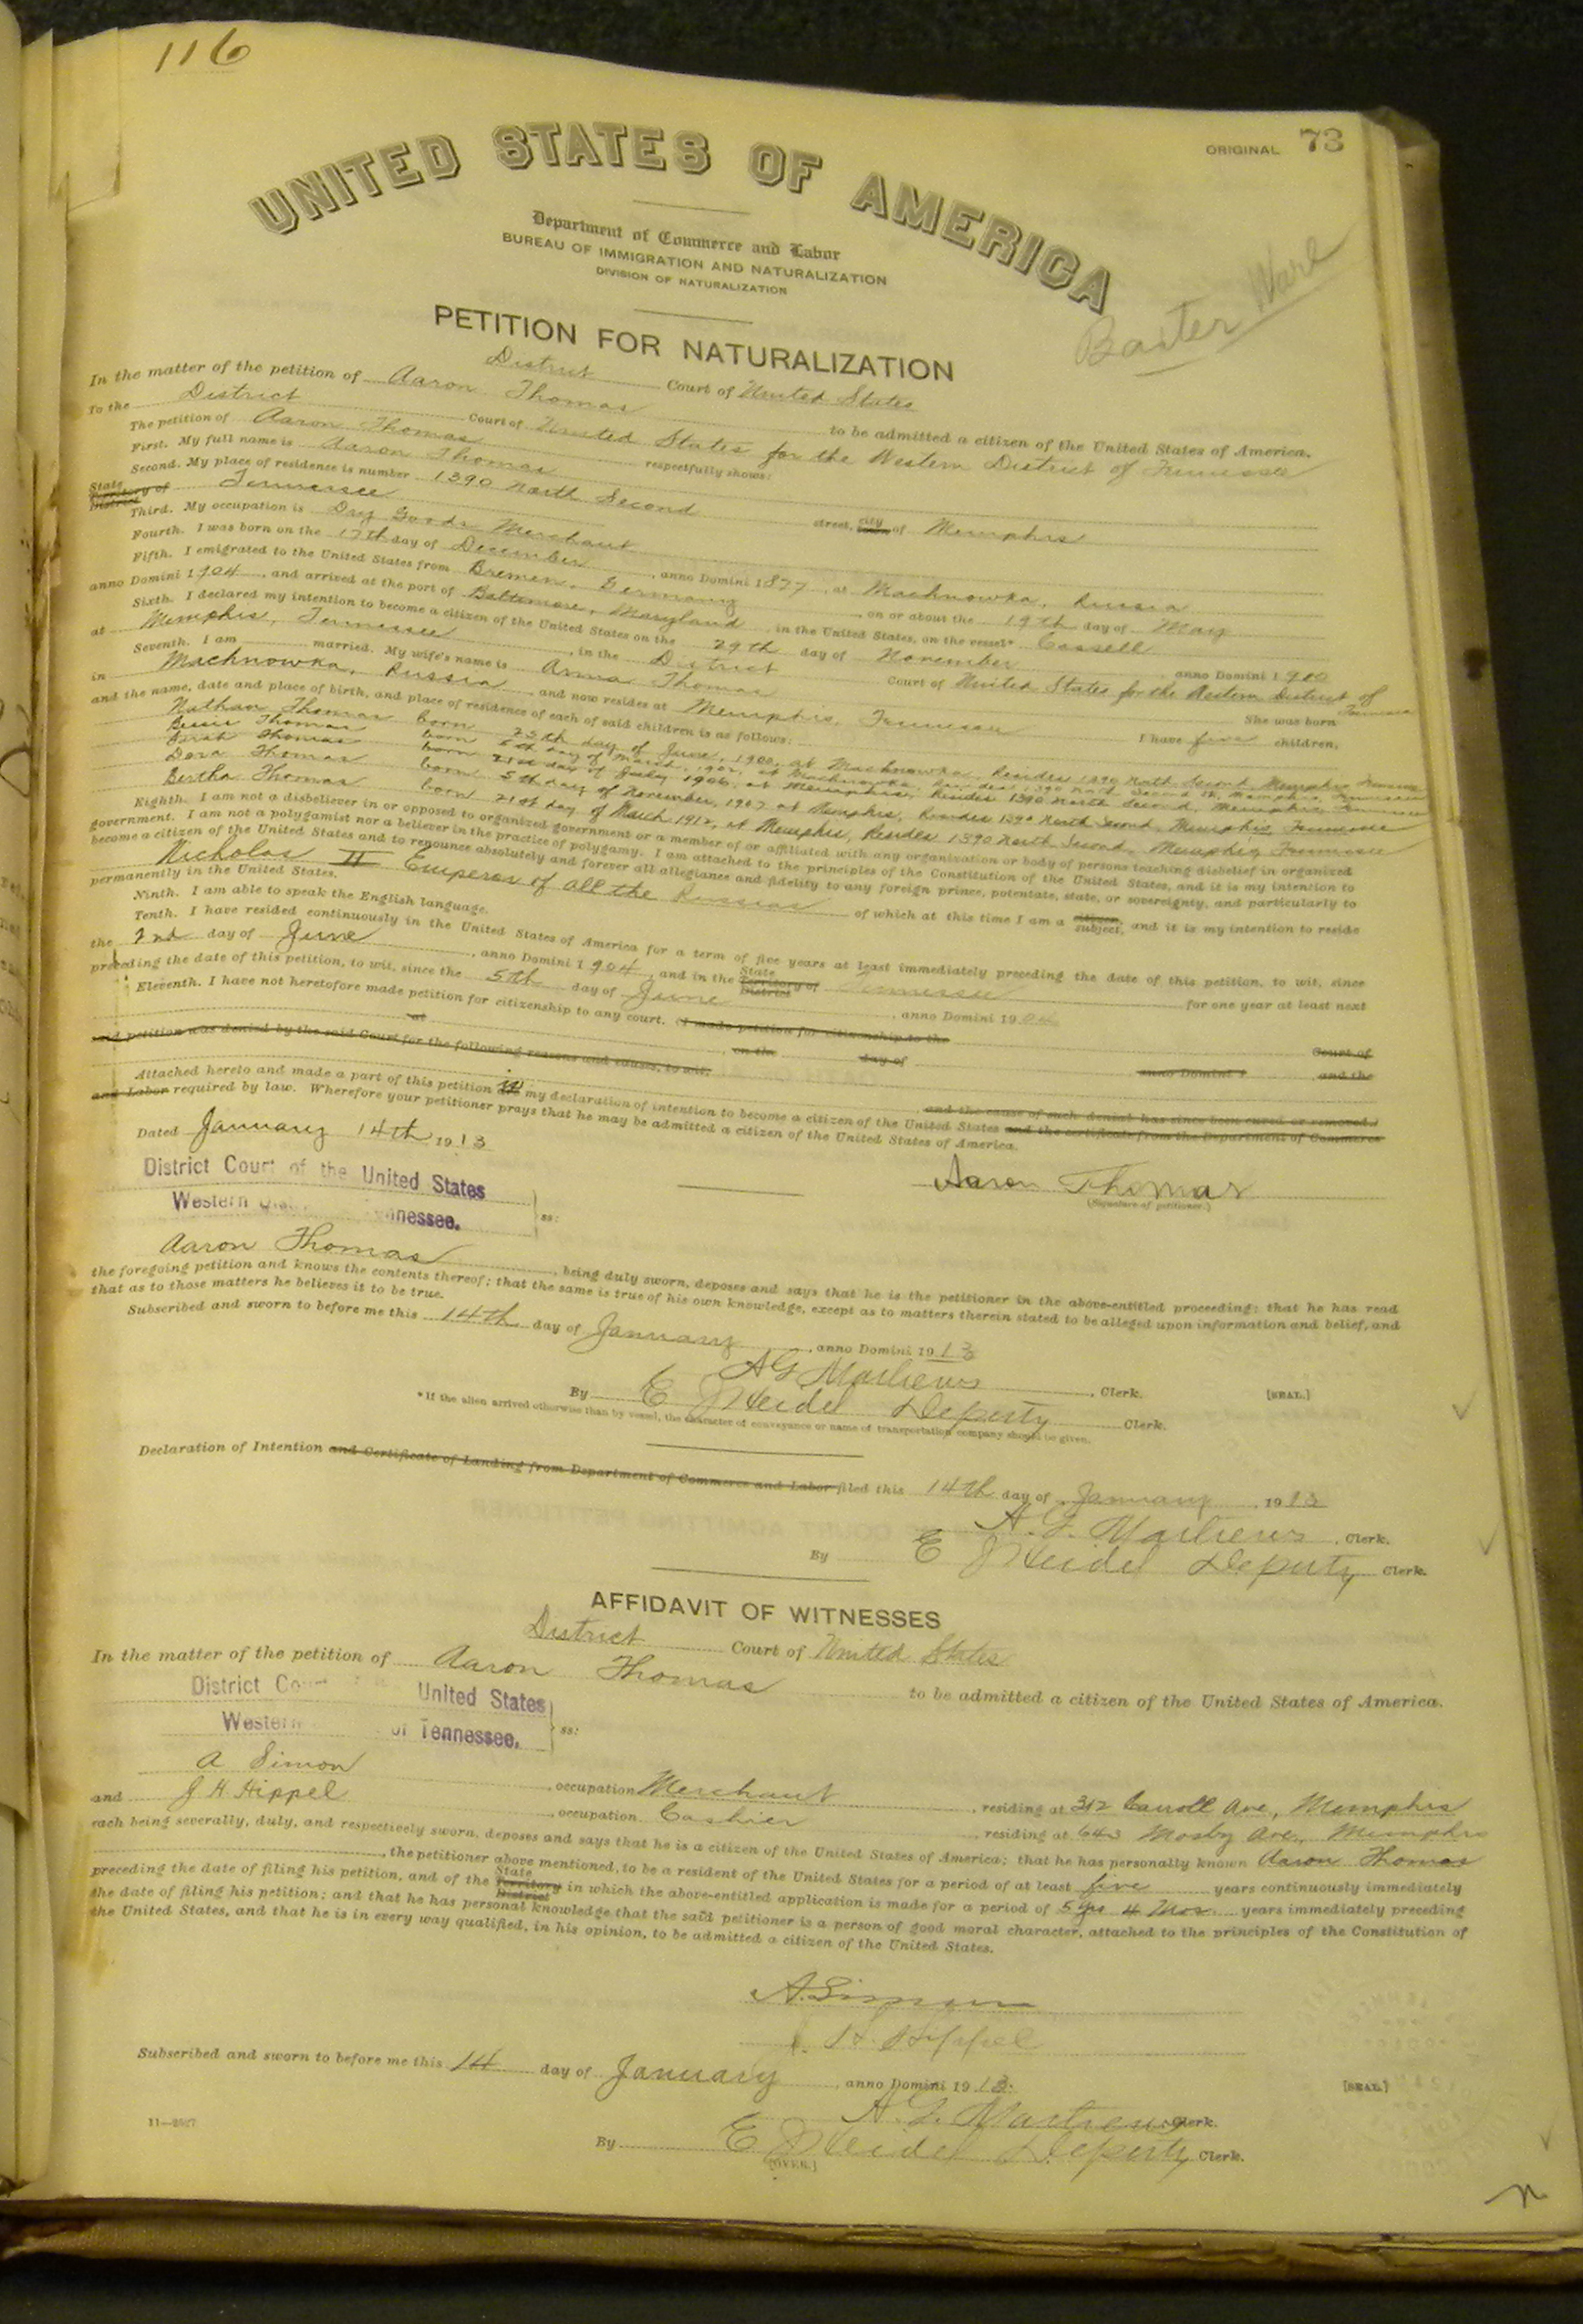 116
ORIGINAL 73
UNITED STATES OF AMERICA
Department of Commerce and Labor
BUREAU OF IMMIGRATION AND NATURALIZATION
DIVISION OF NATURALIZATION
Baxter Ware
PETITION FOR NATURALIZATION
District Court of United States
In the matter of the petition of Aaron Thomas to be admitted a citizen of the United States of America.
To the District Court of United States for the Western District of Tennessee
The petition of Aaron Thomas respectfully shows:
First. My full name is Aaron Thomas
Second. My place of residence is number 1390 North Second street, city of Memphis
State Territory of District Tennessee
Third. My occupation is Dry Goods Merchant
Fourth. I was born on the 17th day of December, anno Domini 1877, at Machnowka, Russia
Fifth. I emigrated to the United States from Bremen, Germany on or about the 19th day of May
anno Domini 1904, and arrived at the port of Baltimore, Maryland, in the United States, on the vessel* Cassell
Sixth. I declared my intention to become a citizen of the United States on the 29th day of November, anno Domini 19
at Memphis, Tennessee, in the District Court of United States for the Western District of Tennessee
Seventh. I am married. My wife's name is Anna Thomas She was born
in Machnowka, Russia and now resides at Memphis, Tennessee I have five children,
and the name, date and place of birth, and place of residence of each of said children is as follows:
Nathan Thomas born 25th day of June, 1900, at Machnowka, Resides 1390 North Second, Memphis Tennessee
Bessie Thomas born day of March, at Machnowka, Resides 1390 North Second St, Memphis, Tennessee
Sarah Thomas born 21st day of July 1906, at Memphis, Resides 1390 North Second, Memphis, Tennessee
Dora Thomas born 5th day of November, 1907 at Memphis, Resides 1390 North Second, Memphis, Tennessee
Bertha Thomas born 21st day of March 1912, at Memphis, Resides 1390 North Second, Memphis Tennessee
Eighth. I am not a disbeliever in or opposed to organized government or a member of or affiliated with any organization or body of persons teaching disbelief in organized
government. I am not a polygamist nor a believer in the practice of polygamy. I am attached to the principles of the Constitution of the United States, and it is my intention to
become a citizen of the United States and to renounce absolutely and forever all allegiance and fidelity to any foreign prince, potentate, state, or sovereignty, and particularly to
Nicholas II Emperor of all the Russias of which at this time I am a citizen subject, and it is my intention to reside
permanently in the United States.
Ninth. I am able to speak the English language.
Tenth. I have resided continuously in the United States of America for a term of five years at least immediately preceding the date of this petition, to wit, since
the 2nd day of June, anno Domini 1904, and in the State Territory of District Tennessee for one year at least next
preceding the date of this petition, to wit, since the 5th day of June, anno Domini 1904
Eleventh. I have not heretofore made petition for citizenship to any court. (I made petition for citizenship to the Court of
at on the day of anno Domini 1 and the
said petition was denied by the said Court for the following reasons and causes, to wit:
and the cause of such denial has since been cured or removed.)
Attached hereto and made a part of this petition is my declaration of intention to become a citizen of the United States and the certificate from the Department of Commerce
and Labor required by law. Wherefore your petitioner prays that he may be admitted a citizen of the United States of America.
Dated January 14th 1913
Aaron Thomas
(Signature of petitioner.)
District Court of the United States
Western nnessee. ss:
Aaron Thomas, being duly sworn, deposes and says that he is the petitioner in the above-entitled proceeding; that he has read
the foregoing petition and knows the contents thereof; that the same is true of his own knowledge, except as to matters therein stated to be alleged upon information and belief, and
that as to those matters he believes it to be true.
Subscribed and sworn to before me this 14th day of January, anno Domini 1913
A G Mathews, Clerk. [SEAL.]
By E J Heidel Deputy Clerk.
*If the alien arrived otherwise than by vessel, the character of conveyance or name of transportation company should be given.
Declaration of Intention and Certificate of Landing from Department of Commerce and Labor filed this 14th day of January, 1913
A. G. Mathews, Clerk.
By E J Heidel Deputy Clerk.
AFFIDAVIT OF WITNESSES
District Court of United States
In the matter of the petition of Aaron Thomas to be admitted a citizen of the United States of America.
District Co United States
Western of Tennessee. ss:
A Simon, occupation Merchant, residing at 312 Carroll Ave, Memphis
and J H Hippel, occupation Cashier, residing at 643 Mosby Ave, Memphis
each being severally, duly, and respectively sworn, deposes and says that he is a citizen of the United States of America; that he has personally known Aaron Thomas
, the petitioner above mentioned, to be a resident of the United States for a period of at least five years continuously immediately
preceding the date of filing his petition, and of the State Territory District in which the above-entitled application is made for a period of 5 yrs 4 Mos. years immediately preceding
the date of filing his petition; and that he has personal knowledge that the said petitioner is a person of good moral character, attached to the principles of the Constitution of
the United States, and that he is in every way qualified, in his opinion, to be admitted a citizen of the United States.
A. Simon
J. H. Hippel
Subscribed and sworn to before me this 14 day of January, anno Domini 1913. [SEAL.]
A. G. Mathews, Clerk.
By E J Heidel Deputy Clerk.
11—2627
[OVER.]